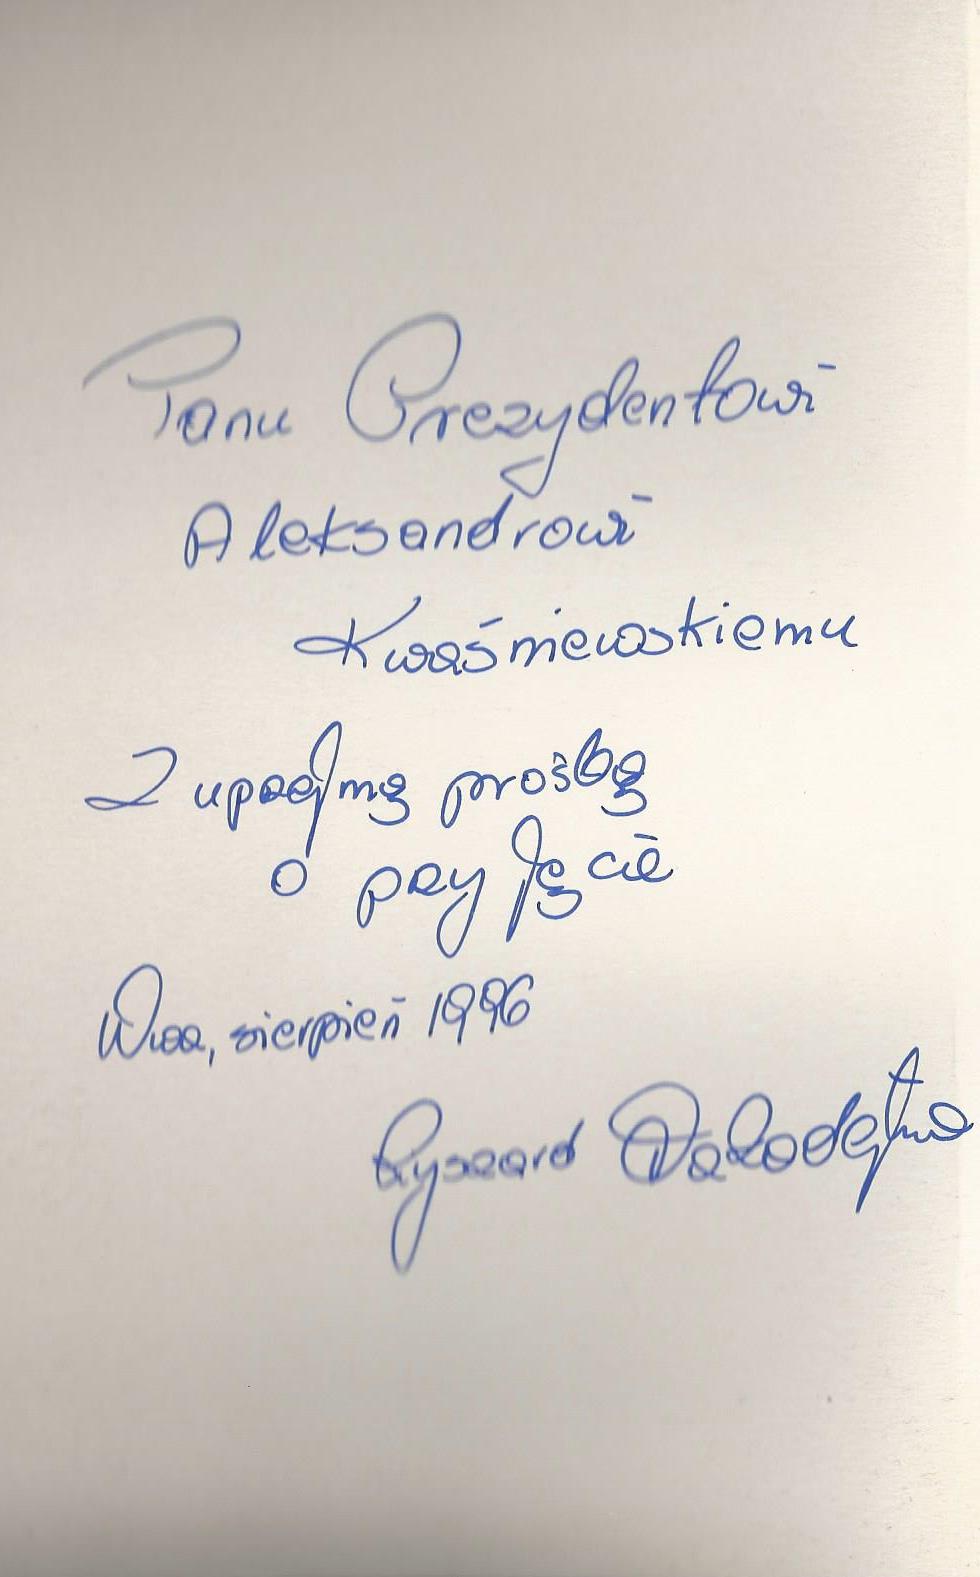 Panu Prezydentowi
Aleksandrowi
Kwaśniewskiemu
Z uprzejmą prośbą
o przyjęcie
Wwa, sierpień 1996
Ryszard